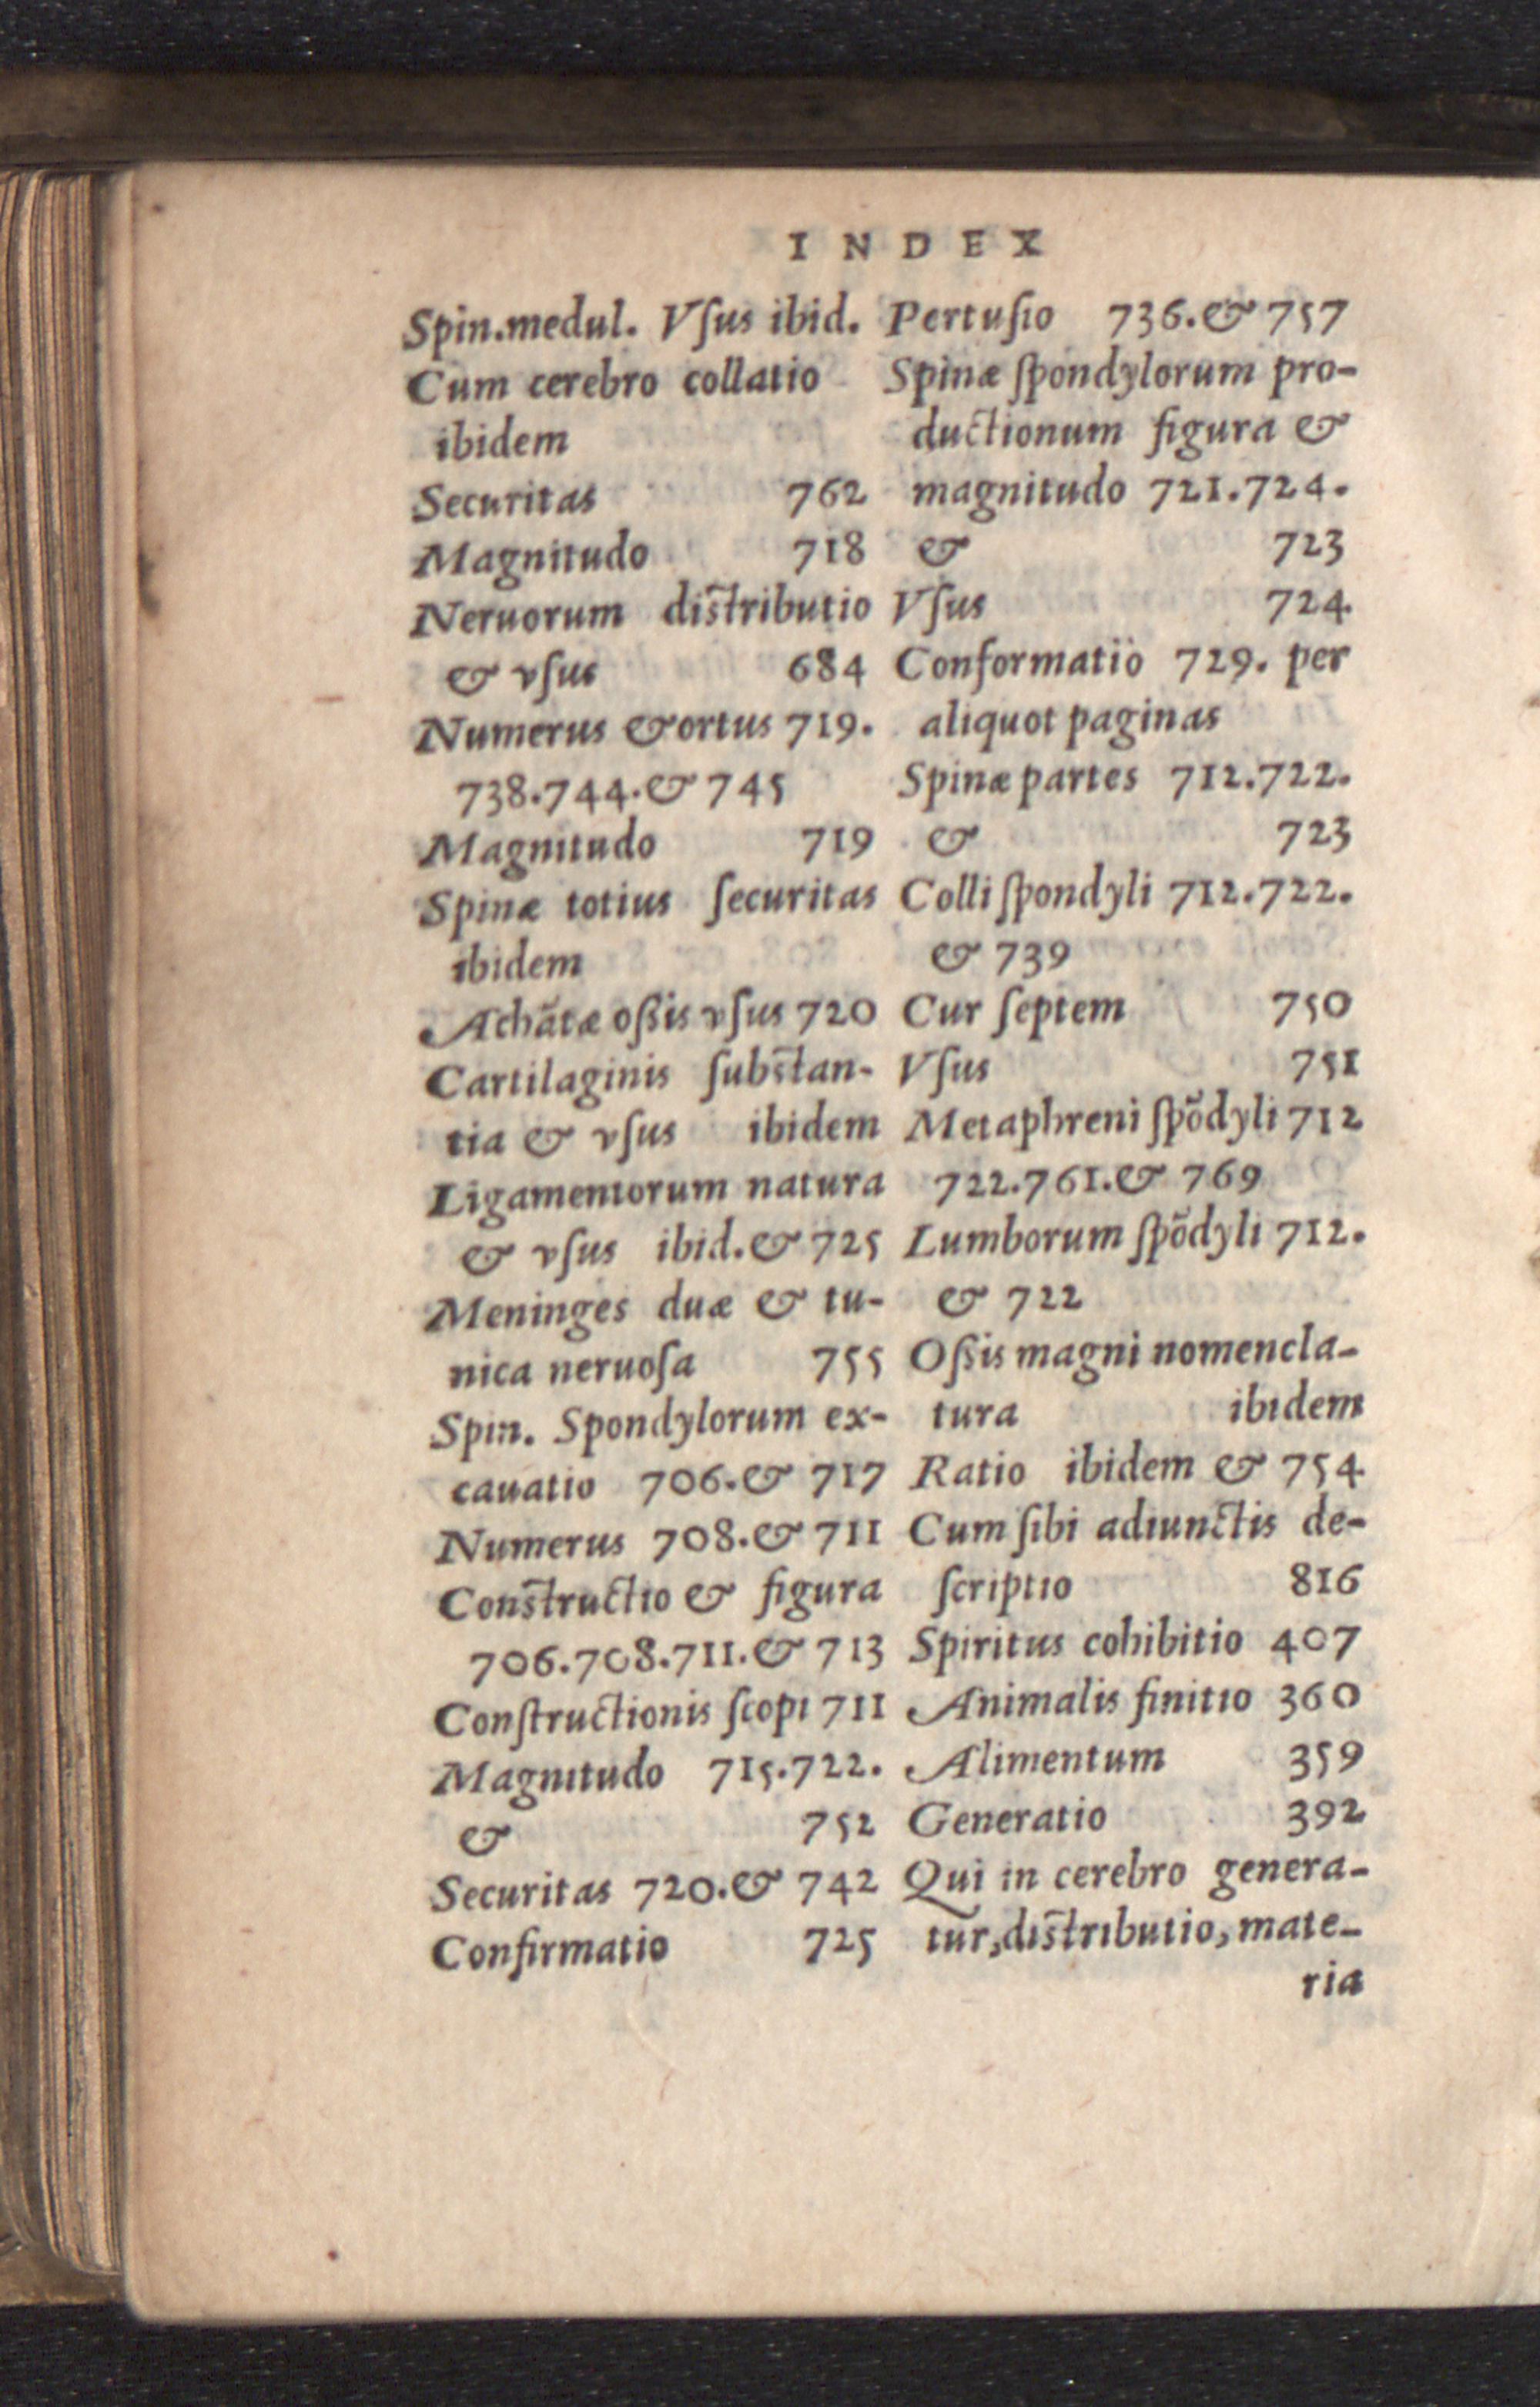 INDEX
Spin.medul. Vſus ibid.
Cum cerebro collatio
ibidem
Securitas 762
Magnitudo 718
Neruorum diſtributio
& vſus 684
Numerus & ortus 719.
738.744.& 745
Magnitudo 719
Spinæ totius ſecuritas
ibidem
Achātæ oſsis vſus 720
Cartilaginis ſubſtan-
tia & vſus ibidem
Ligamentorum natura
& vſus ibid.& 725
Meninges duæ & tu-
nica neruoſa 755
Spin. Spondylorum ex-
cauatio 706.& 717
Numerus 708.& 711
Conſtructio & figura
706.708.711.& 713
Conſtructionis ſcopi 711
Magnitudo 715.722.
& 752
Securitas 720.& 742
Confirmatio 725
Pertuſio 736.& 757
Spinæ ſpondylorum pro-
ductionum figura &
magnitudo 721.724.
& 723
Vſus 724
Conformatio 729. per
aliquot paginas
Spinæ partes 712.722.
& 723
Colli ſpondyli 712.722.
& 739
Cur ſeptem 750
Vſus 751
Metaphreni ſpōdyli 712
722.761.& 769
Lumborum ſpōdyli 712.
& 722
Oſsis magni nomencla-
tura ibidem
Ratio ibidem & 754
Cum ſibi adiunctis de-
ſcriptio 816
Spiritus cohibitio 407
Animalis finitio 360
Alimentum 359
Generatio 392
Qui in cerebro genera-
tur,diſtributio, mate-
ria